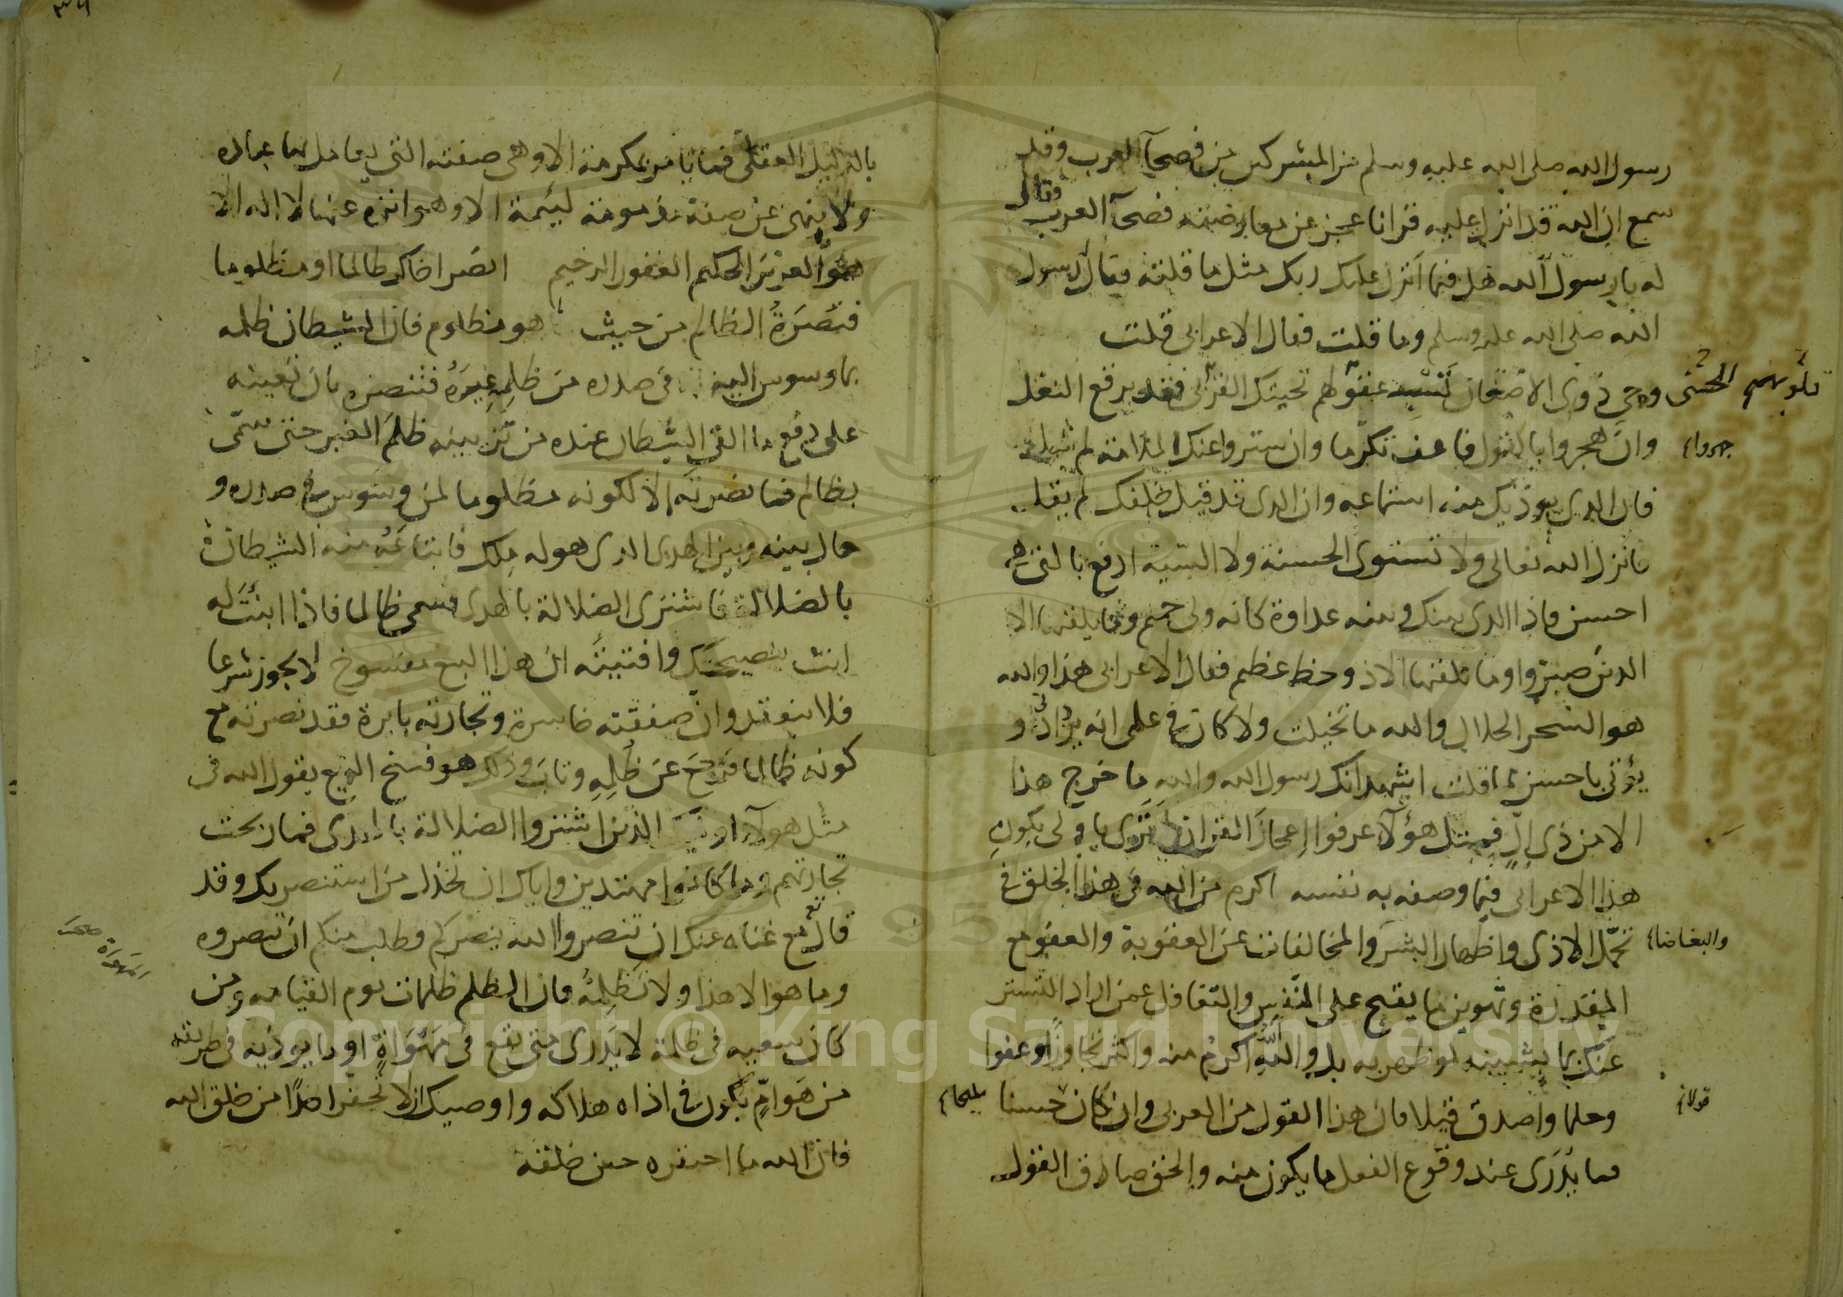 رسول الله صلى الله عليه وسلم من المشركين من فصحآ العرب وقد
سمع ان الله قد انزل عليه قرانا عجز عن معارضته فصحآ العرب وقال
له يا رسول الله هل فيما انزل عليك ربك مثل ما قلته فقال رسول
الله صلى الله عليه وسلم وما قلت فقال الاعرابى قلت
وحى ذوى الاضغان تسبى عقولهم تحيتك القربى فقد يرقع النغل
وان هجروا بالقول فاعف تكرما وان ستروا عنك الملامة لم تبل
فان الذى يوذيك منه استماعه وان الذى قد قيل خلفك لم يقل
فانزل الله تعالى ولا تستوى الحسنة ولا السيئة ادفع بالتى هى
احسن فاذا الذى بينك وبينه عداوة كانه ولى حميم وما يلقيها الا
الذين صبروا وما يلقيها الا ذو حظ عظيم فقال الاعرابى هذا والله
هو السحر الحلال والله ما تخيلت ولا كان فى علمى انه يزاد او
يؤتى باحسن مما قلت اشهد انك رسول الله والله ما خرج هذا
الا من ذى إلّ فمثل هؤلآ عرفوا اعجاز القران ترى يا ولى يكون
هذا الاعرابى فيما وصف به نفسه اكرم من الله فى هذا الخلق فى
تحمل الاذى واظهار البشر والمخالفات عن العقوبة والعفو مع
المقدرة وتهوين ما يقبح على النفس والتغافل عمن اراد التستر
عنك بما يشينه لو ظهر به بل والله اكرم منه واكثر تجاوزا وعفوا
وحلما واصدق قيلا فان هذا القول من العربى وان كان حسنا
فما يدرى عند وقوع الفعل ما يكون منه والحق صادق القول
قلوبهم الحسنى
جهروا
والبغاضا
قولا
بالدليل العقلى فما يامر بمكرمة الا وهى صفته التى يعامل بها عباده
ولا ينهى عن صفة مذمومة لئيمة الا وهو انزه عنها لا اله الا
هو العزيز الحكيم الغفور الرحيم انصر اخاك ظالما او مظلوما
فنصرة الظالم من حيث هو مظلوم فان الشيطان ظلمه
بما وسوس اليه فى صدره من ظلم غيره فتنصره بان تعينه
على دفع ما القى الشيطان عنده من تزيينه ظلم الغير حتى سمى
بظالم فما نصرته الا لكونه مظلوما لمن وسوس فى صدره و
حال بينه وبين الهدى الذى هو له ملك فابتاعه منه الشيطان
بالضلالة فاشترى الضلالة بالهدى فسمى ظالما فاذا ابنت له
انت بنصيحتك وافتيته ان هذا البيع مفسوخ لا يجوز شرعا
فلا ينعقد وان صفقته خاسرة وتجارته بايرة فقد نصرته مع
كونه ظالما فرجع عن ظلمه وتاب وذلك هو فسخ البيع يقول الله فى
مثل هولآ اوليك الذين اشتروا الضلالة بالهدى فما ربحت
تجارتهم وما كانوا مهتدين واياك ان تخذل من استنصر بك وقد
قال مع غناه عنك ان تنصروا الله ينصركم وطلب منكم ان تنصروه
وما هو الا هذا ولا تظلمه فان الظلم ظلمات يوم القيامة ومن
كان سعيه فى ظلمة لا يدرى متى يقع فى مهواة او ما يوذيه فى طريقه
من هوام يكون فى اذاه هلاكه واوصيك ان لا تحقر احدا من خلق الله
فان الله ما احتقره حين خلقه
Copyright © King Saud University